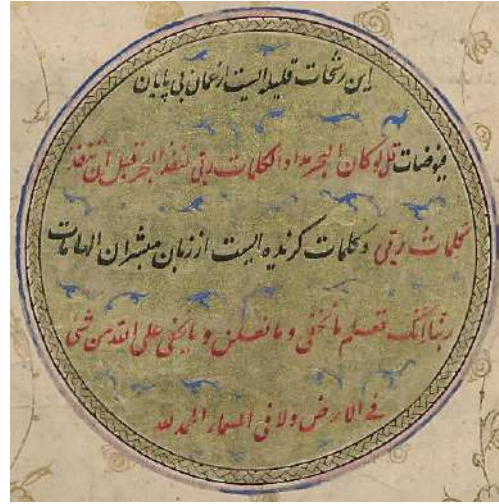 این رشحات قلیله ایست از عمان بی پایان
فیوضات قل لو کان البحر مدادا لکلمات ربی لنفد البحر قبل ان تنفد
کلمات ربی و کلمات گزیده ایست از زبان مبشران الهامات
ربنا انک تعلم ما نخفی و ما نعلن و ما یخفی علی الله من شئ
فی الارض ولا فی السماء الحمد لله